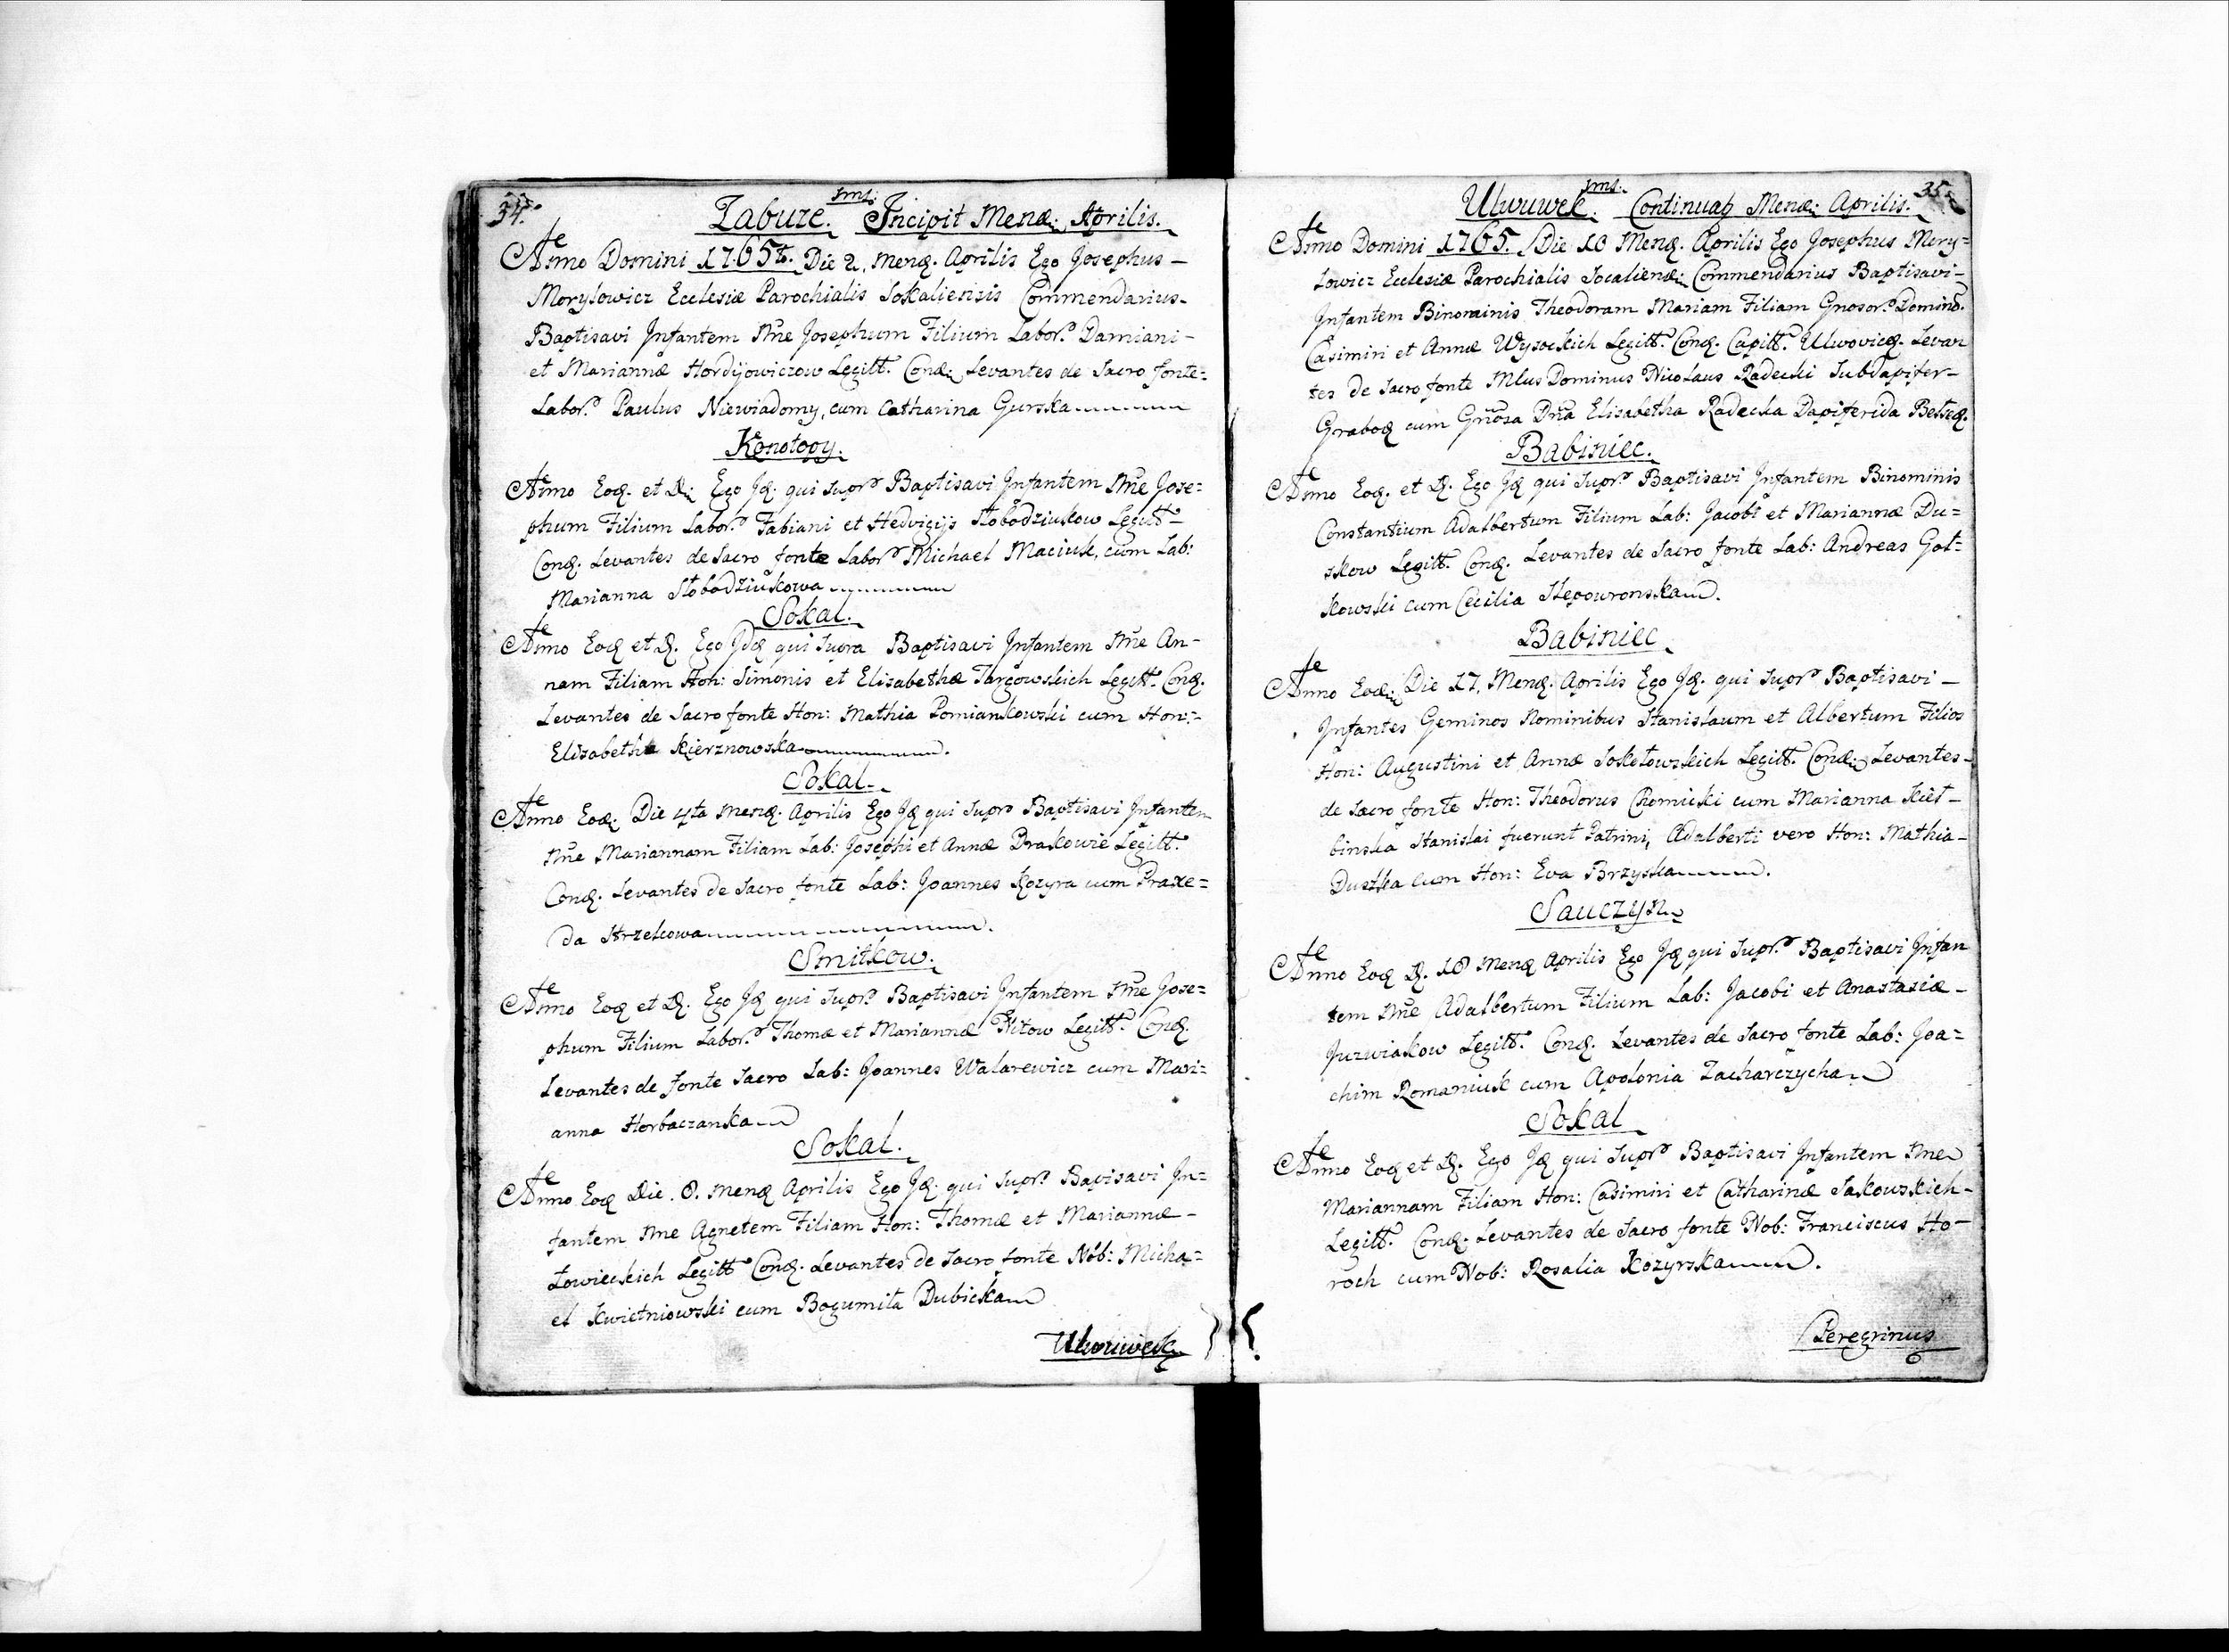 34.
Zabuze. Incipit Mensꝫ: Aprilis.
Anno Domini 1765to. Die 2, Mensꝫ. Aprilis Ego Josephus –
Morylowicz Ecclesiæ Parochialis Sokaliensis Commendarius –
Baptisavi Infantem Nne Josephum Filium Labor. Damiani –
et Mariannæ Hordijowiczow Legitt. Conꝫ: Levantes de Sacro fonte =
Labor. Paulus Niewiadomy, cum Catharina Gurska
Konotopy.
Anno Eoꝫ. et D: Ego Iꝫ. qui Supr Baptisavi Infantem Nne Jose=
phum Filium Labor. Fabiani et Hedvigijs Słobodziukow Legitt –
Conꝫ. Levantes de Sacro fonte Labor Michael Maciuk, cum Lab:
Marianna Słobodziukowa
Sokal.
Anno Eoꝫ et D. Ego Idꝫ qui Supra Baptisavi Infantem Nne An-
nam Filiam Hon: Simonis et Elisabethæ Targowskich Legitt. Conꝫ.
Levantes de Sacro fonte Hon: Mathia Pomiankowski cum Hon: -
Elisabetha Kierznowska.
Sokal.
Anno Eoꝫ: Die 4ta Mensꝫ. Aprilis Ego Iꝫ qui Supr Baptisavi Infantem
Nne Mariannam Filiam Lab: Josephi et Annæ Drakowie Legitt.
Conꝫ. Levantes de Sacro fonte Lab: Joannes Kozyra cum Praxe=
da Strzelcowa.
Smitkow.
Anno Eoꝫ et D. Ego Iꝫ qui Supr. Baptisavi Infantem Nne Jose=
phum Filium Labor. Thomæ et Mariannæ Nitow Legitt. Conꝫ.
Levantes de fonte Sacro Lab: Joannes Walarewicz cum Mari=
anna Horbaczanka
Sokal.
Anno Eoꝫ Die. 8. Mensꝫ Aprilis Ego Iꝫ. qui Supr. Bapisavi In=
fantem Nne Agnetem Filiam Hon: Thomæ et Mariannæ –
Łowieckich Legitt Conꝫ. Levantes de Sacro fonte Nob: Micha=
el Kwietniowski cum Bogumiła Dubicka
Ulwuwek
35.
Ulwuwek. Continuaꝫ Mensꝫ: Aprilis.
Anno Domini 1765. Die 10 Mensꝫ. Aprilis Ego Josephus Mory=
lowicz Ecclesiæ Parochialis Socaliensꝫ: Commendarius Baptisavi –
Infantem Binominis Theodoram Mariam Filiam Gnosor. Domino.
Casimiri et Annæ Wysockich Legitt. Conꝫ. Capitt. Ulwovicꝫ. Levan
tes de Sacro fonte Mlus Dominus Nicolaus Radecki Subdapifer –
Graboꝫ cum Gnosa Dna Elisabetha Radecka Dapiferida Belzeꝫ.
Babiniec.
Anno Eoꝫ. et D. Ego Iꝫ qui Supr. Baptisavi Infantem Binominis
Constantium Adalbertum Filium Lab: Jacobi et Mariannæ Du=
skow Legitt. Conꝫ. Levantes de Sacro fonte Lab: Andreas Goł=
kowski cum Cecilia Stepowronska.
Babiniec
Anno Eoꝫ: Die 17, Mensꝫ. Aprilis Ego Iꝫ. qui Supr Baptisavi –
Infantes Geminos Nominibus Stanisłaum et Albertum Filios
Hon: Augustini et Annæ Sokołowskich Legitt. Conꝫ: Levantes –
de Sacro fonte Hon: Theodorus Chomicki cum Marianna Kieł –
binska Stanislai fuerunt Patrini, Adalberti vero Hon: Mathia –
Duszka cum Hon: Eva Brzyska.
Sauczyn
Anno Eoꝫ D. 18 Mensꝫ Aprilis Ego Iꝫ qui Supr. Baptisavi Infan
tem Nne Adalbertum Filium Lab: Jacobi et Anastasiæ –
Juzwiakow Legitt. Conꝫ. Levantes de Sacro fonte Lab: Joa=
chim Romaniuk cum Apolonia Zacharczycha
Sokal
Anno Eoꝫ et D. Ego Iꝫ qui Supr Baptisavi Infantem Nne
Mariannam Filiam Hon: Casimiri et Catharinæ Sakowskich –
Legitt. Conꝫ. Levantes de Sacro fonte Nob: Franciscus Ho –
roch cum Nob: Rosalia Kozyrska.
Peregrinus